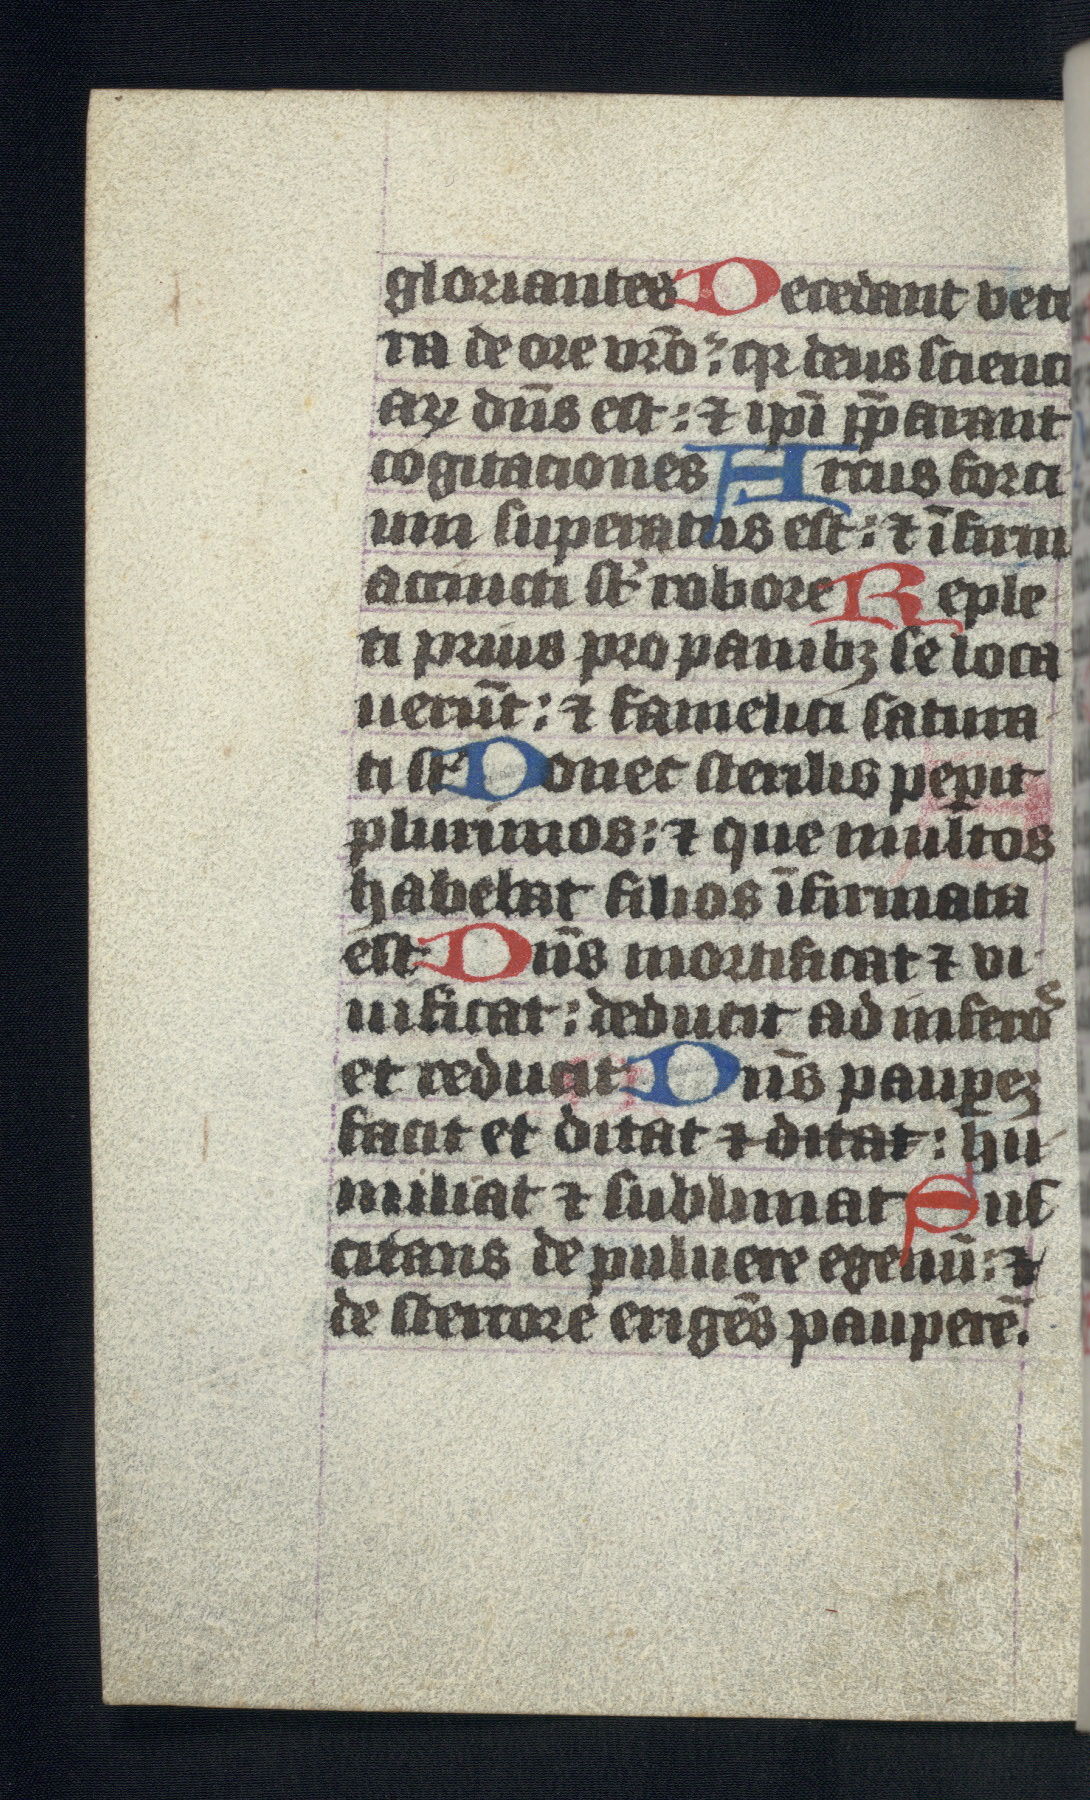 gloriantes Recedant vete
ra de ore vr̄o : qr deus scienci
aꝝ dn̄s est : ⁊ ipī p̄parant
cogitationes Arcus forci
um superatus est : ⁊ īfirmi
accincti st' robore Reple
ti prius pro panibꝫ se loca
uerūt : ⁊ famelici satura
ti st' Donec sterilis peꝑit
plurimos : ⁊ que multos
habebat filios īfirmata
est Dn̄s mortificat ⁊ vi
uificat : deducit ad inferos
et reducit Dn̄s pauꝑeꝫ
facit et ditat ⁊ ditat : hu
miliat ⁊ sublimat Sus
citans de puluere egenū : ⁊
de stercore erigēs pauperē.